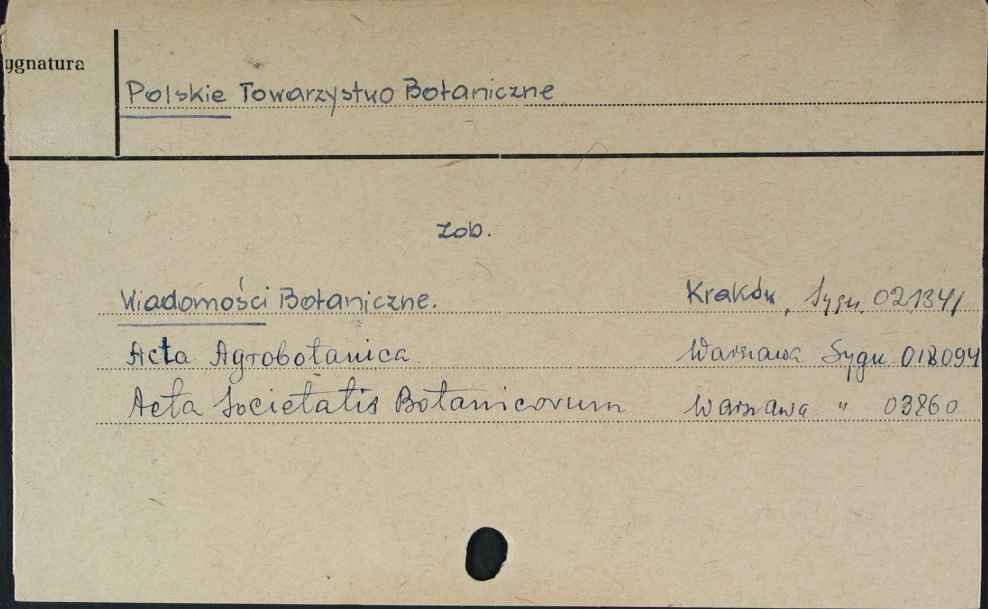 ygnatura
Polskie Towarzystwo Botaniczne
zob.
Wiadomości Botaniczne. Kraków, Sygn. 021341
Acta Agrobotanica Warszawa Sygn. 018094
Acta Societatis Botanicorum Warszawa " 03860